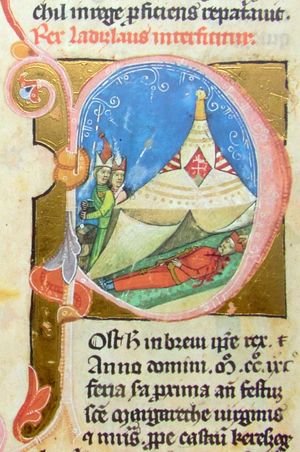 chil in rege proficiens repatauit.
Rex Ladizlaus interficitur.
Post h in breui ipse rex. &
Anno domini. Mº. CCº. lxc
feria s̃a prima añ festuz
sc̃e Margarethe virginis
& ꝓpe castrũ